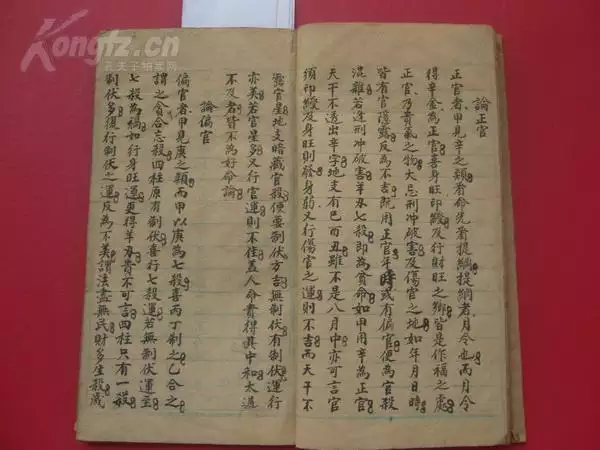 論正官
正官者甲見辛之類看命先看提綱提綱者月令也而月令
得辛金為正官喜身旺印綬及行財旺之鄉皆是作福之處
正官乃貴氣之物大忌刑冲破害及傷官之地如年月日時
皆有官隱露反為不吉既用正官年時或有偏官便為官殺
混雜若逢刑冲破害羊刃七殺即為貧命如甲用辛為正官
天干不透出辛字地支有巳酉丑雖不是八月中亦可言官
須印綬及身旺則發身弱又行傷官之運則不吉而天干不
露官星地支暗藏官殺便要制伏方吉無制伏有制伏運行
亦美若官星多又行官運則不佳蓋人命貴得其中和太過
不及者皆不為好命論
論偏官
偏官者甲見庚之類而甲以庚為七殺喜丙丁制之乙合之
謂之貪合忘殺四柱原有制伏喜行七殺運若無制伏運至
七殺為禍如行身旺運更得羊刃貴不可言四柱只有一殺
制伏多復行制伏之運反為不美謂法盡無民財多生殺歲
Kongfz.cn